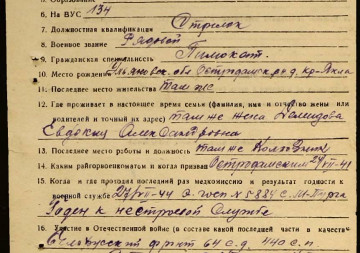 6. На ВУС 134
7. Должностная квалификация Стрелок
8. Военное звание Рядовой
9. Гражданская специальность Пимокат.
10. Место рождения Ульяновск. обл
11. Последнее место жительства Там же
12. Где проживает в настоящее время семья (фамилия, имя и отчество жены или
родителей и точный их адрес) там же жена Демидова
Евдокия Александровна
13. Последнее место работы и должность там же Колхозник
14. Каким райгорвоенкоматом и когда призван 29/VII-41
15. Когда и где проходил последний раз медкомиссию и результат годности к
военной службе 27/VII-44 э. госп № 5884 с.
Годен к нестроевой Службе
16. Участие в Отечественной войне (в составе какой последней части в качестве
фронт 64 с.д. 440 с.п.